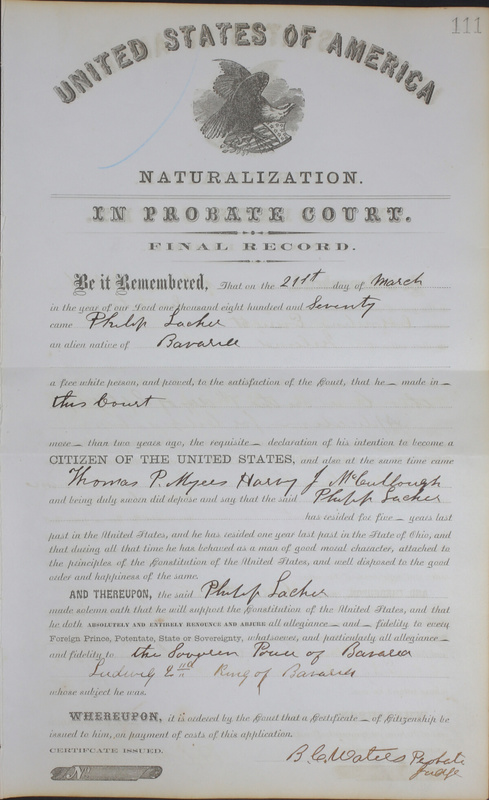 111
UNITED STATES OF AMERICA
NATURALIZATION.
IN PROBATE COURT.
FINAL RECORD.
Be it Remembered, That on the 21st day of March
in the year of our Lord one thousand eight hundred and Seventy
came Philip Lacher
an alien native of Bavaria
a free white person, and proved, to the satisfaction of the Court, that he made in
this Court
more than two years ago, the requisite declaration of his intention to become a
CITIZEN OF THE UNITED STATES, and also at the same time came
Thomas P. Myers Harvy J McCullough
and being duly sworn did depose and say that the said Philip Lacher
has resided for five years last
past in the United States, and he has resided one year last past in the State of Ohio, and
that during all that time he has behaved as a man of good moral character, attached to
the principles of the Constitution of the United States, and well disposed to the good
order and happiness of the same.
AND THEREUPON, the said Philip Lacher
made solemn oath that he will support the Constitution of the United States, and that
he doth ABSOLUTELY AND ENTIRELY RENOUNCE AND ABJURE all allegiance and fidelity to every
Foreign Prince, Potentate, State or Sovereignty, whatsoever, and particularly all allegiance
and fidelity to the Sovereign Power of Bavaria
Ludwig 2nd King of Bavaria
whose subject he was.
WHEREUPON, it is ordered by the Court that a Certificate of Citizenship be
issued to him, on payment of costs of this application.
CERTIFICATE ISSUED.
B. C. Waters Probate
Judge
No